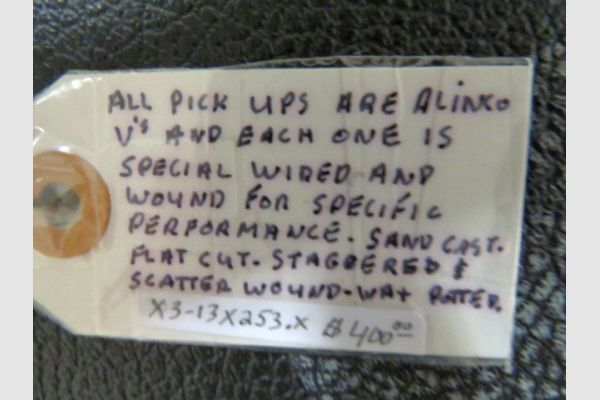 ALL PICK UPS ARE ALINKO
V's AND EACH ONE IS
SPECIAL WIRED AND
WOUND FOR SPECIFIC
PERFORMANCE. SAND CAST.
FLAT CUT. STAGGERED &
SCATTER WOUND-WAX POTTED.
X3-13X253.X $400.00